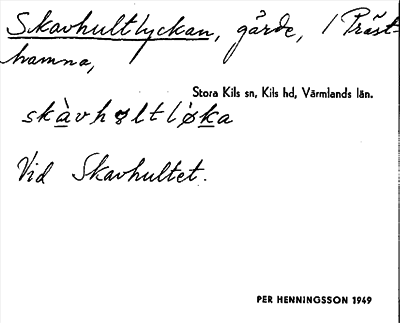 Skavhultlyckan, gärde, / Präst-
hamna,
Stora Kils sn, Kils hd, Värmlands län.
skàvhɷltlø̀ka
Vid Skavhultet.
PER HENNINGSSON 1949